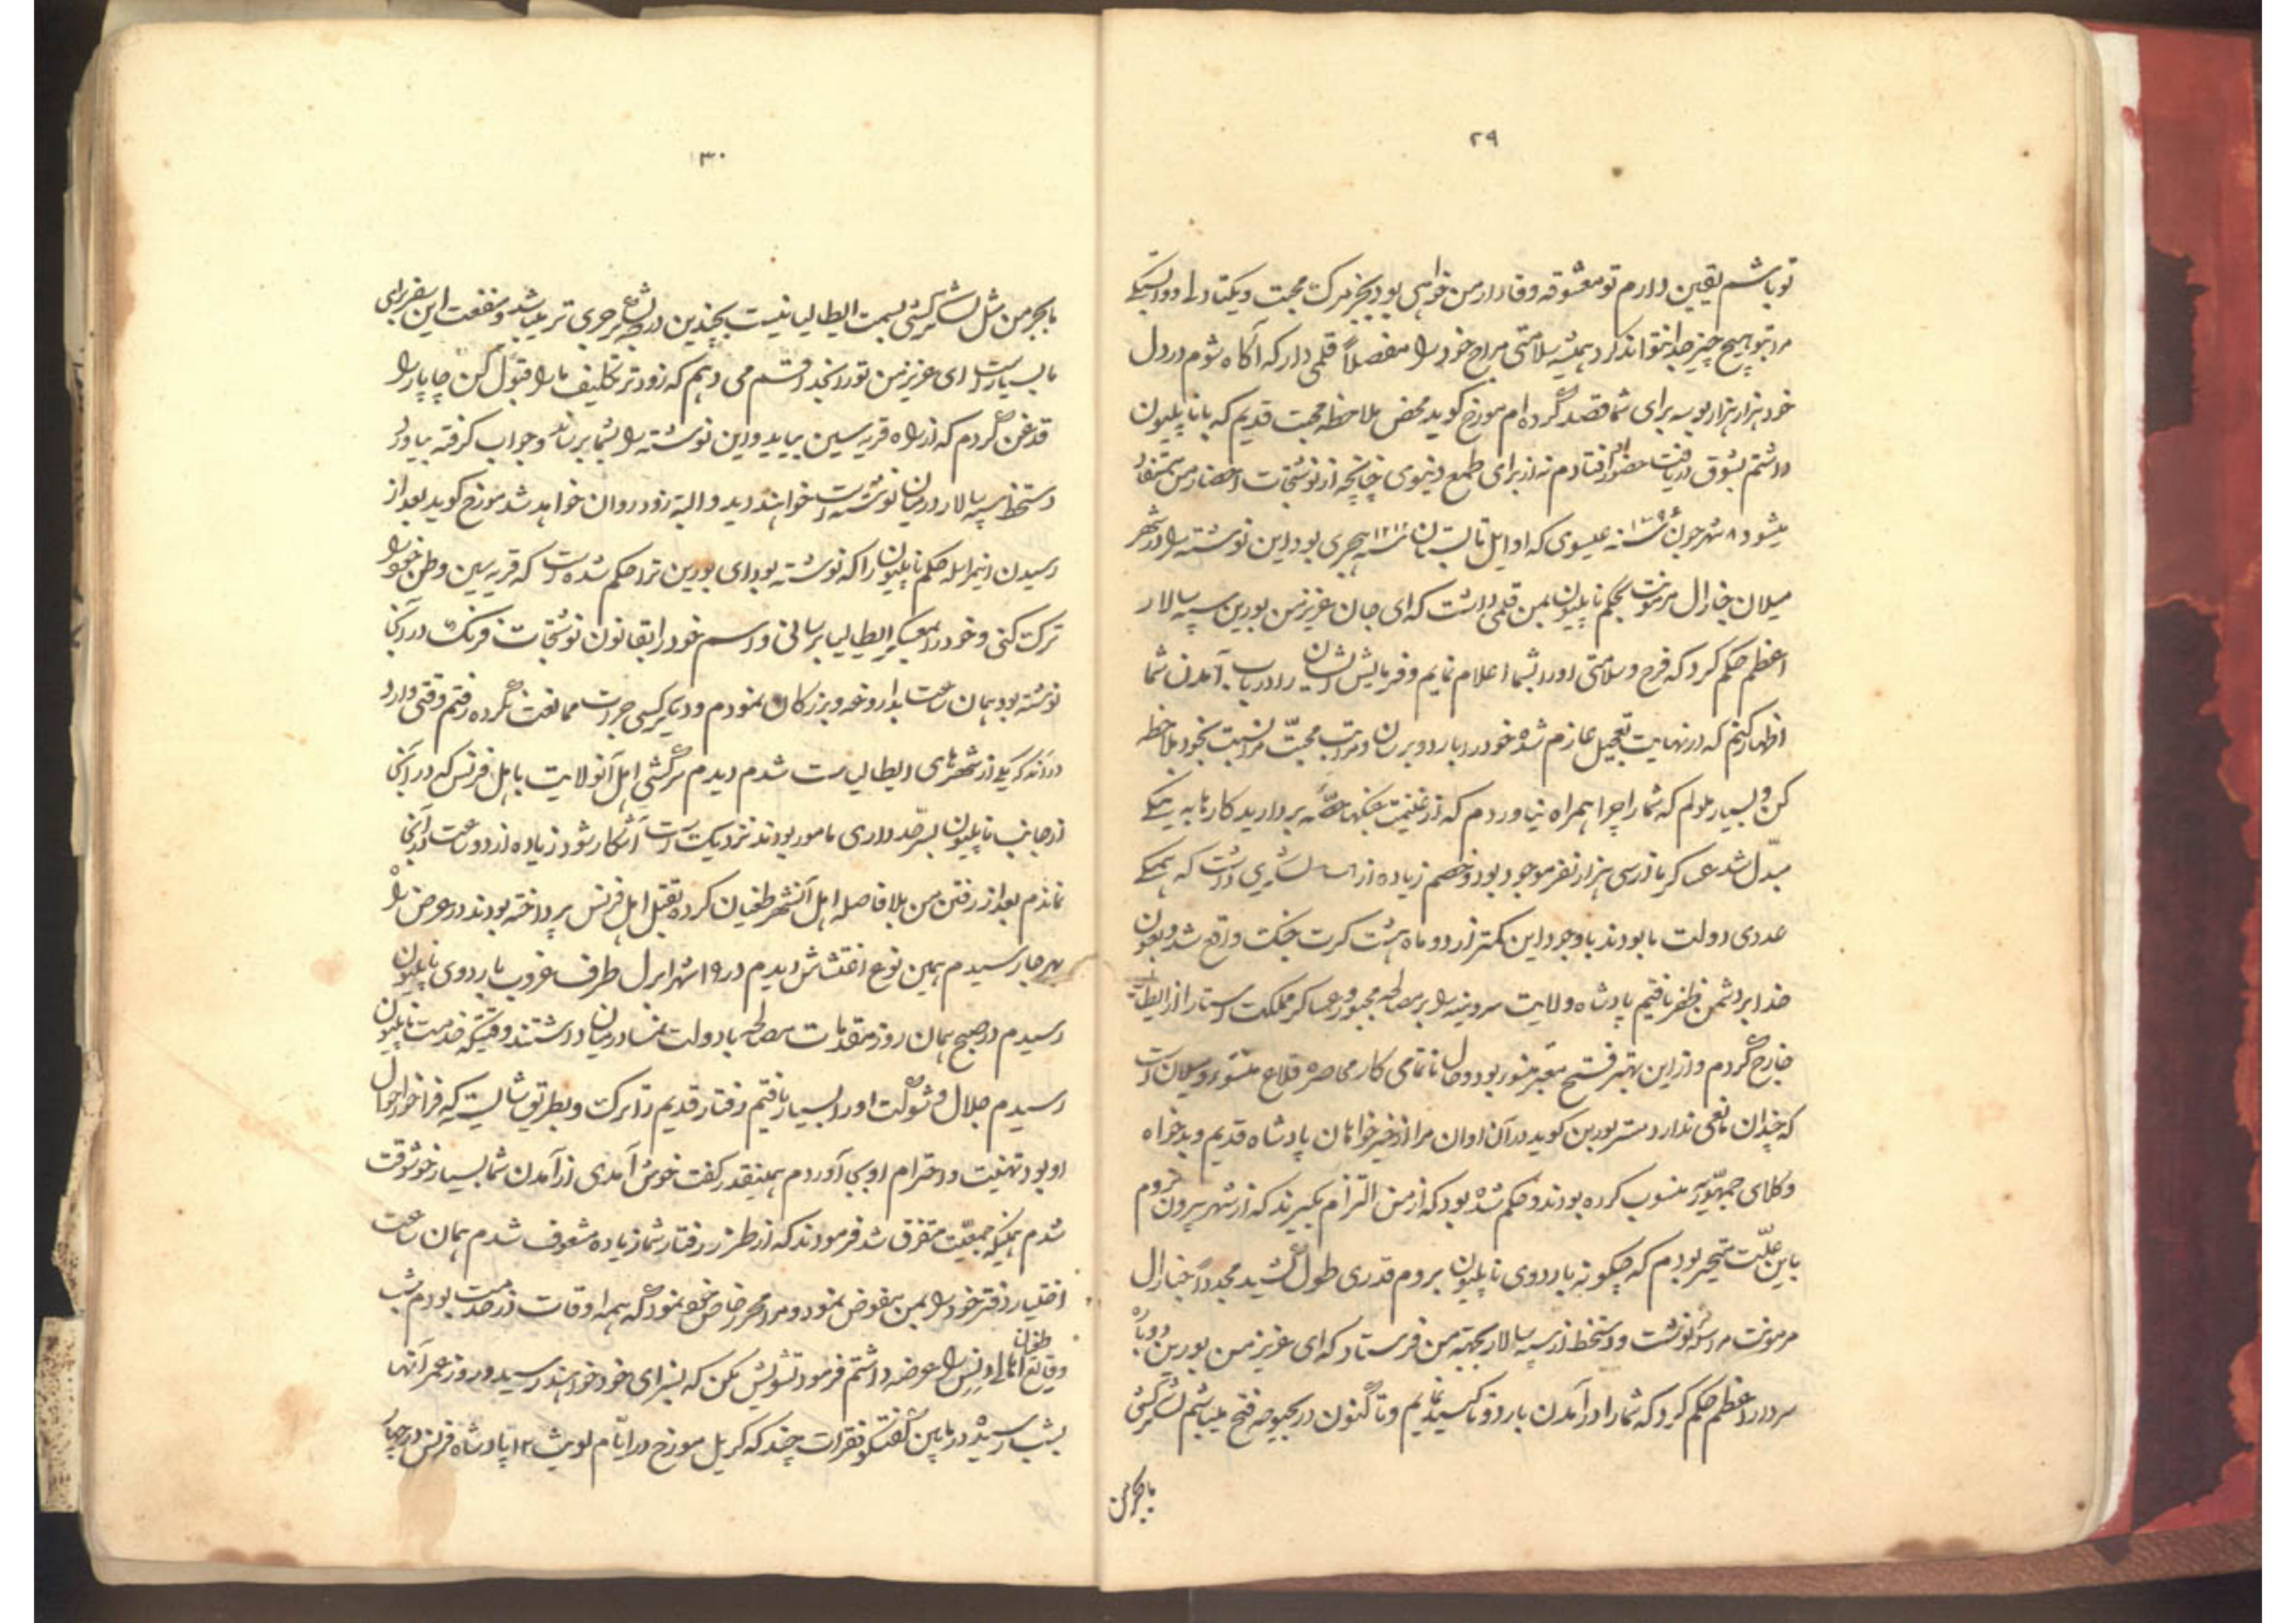 ۲۹
تو باشم یقین دارم تو معشوقه وفادار من خواهی بود بجز مرک محبت و یکتادلی و وابستکی
مرا بتو هیچ چیز جدا نتواند کرد همیشه سلامتی مزاج خود را مفصلاً قلمی دار که آکاه شوم در دل
خود هزار هزار بوسه برای شما قصد کرده ام مورخ کوید محض ملاحظه محبت قدیم که با ناپلیون
داشتم بشوق دریافت حضور او افتادم نه از برای طمع دنیوی چنانچه از نوشتجات احضار من مستفاد
میشود ۸ شهر جون سنه ۱۷۹۶ عیسوی که اوایل تابستان سنه ۱۲۱۲ هجری بود این نوشته را در شهر
میلان جنارال مرمونت بحکم ناپلیون بمن قلمی داشت که ای جان عزیز من بورین سپه سالار
اعظم حکم کرد که فرح و سلامتی او را بشما اعلام نمایم و فرمایش ایشان را در باب آمدن شما
اظهار کنم که در نهایت تعجیل عازم شده خود را باردو برسان و مراتب محبّت مرا نسبت بخود ملاحظه
کن و بسیار ملولم که شما را چرا همراه نیاوردم که از غنیمت جنکها حصّه بردارید کارها به نیکی
مبدّل شد عساکر ما زسی هزار نفر موجود بود و خصم زیاده از لشکری داشت که همکی
عددی دولت ما بودند با وجود این کمتر از دو ماه هشت کرت جنک واقع شد و بعون
خدا بر دشمن ظفر یافتیم پادشاه ولایت سردینیه را بر مصالحه مجبور و عساکر مملکت استار از ایطالیا
خارج کردم و از این بهتر فتح معتبر منسور بود و حال تا تمامی کار محاصره قلاع منتو و میلان است
که چندان مانعی ندارد مستر بورین کوید در آن اوان مرا از خیرخواهان پادشاه قدیم و بدخواه
وکلای جمهوریّه منسوب کرده بودند و حکم شده بود که از من التزام بکیرند که از شهر بیرون نروم
باین علّت متحیر بودم که چکونه باردوی ناپلیون بروم قدری طول کشید مجدداً جنارال
مرمونت مراسله نوشت و دستخط از سپه سالار بجهته من فرستاد که ای عزیز من بورین دوباره
سردار اعظم حکم کرد که شما را در آمدن باردو تاکسید نمایم و تا کنون در بحبوحه فتح میباشیم لشکرکشی
ما بجز من
۳۰
ما بجز من مثل لشکرکشی بسمت ایطالیا نیست بچندین درجه پر جری تر میباشد و منفعت این سفر برای
ما بسیار است ای عزیز من تو را بخدا قسم می دهم که زودتر تکلیف ما را قبول کن چاپار را
قدغن کردم که از راه قریه سین بیاید و این نوشته را بشما برساند و جواب کرفته بیاورد
دستخط سپه سالار در میان نوشته است خواهند دید و البته زود روان خواهد شد مورخ کوید بعد از
رسیدن این مراسله حکم ناپلیون را که نوشته بود ای بورین ترا حکم شده است که قریه سین وطن خود را
ترک کنی و خود را بمعسکر ایطالیا برسانی و اسم خود را بقانون نوشتجات فرنک در آنجا
نوشته بود همان ساعت بداروغه و بزرکان نمودم و دیکر کسی جرات ممانعت نکرده رفتم وقتی وارد
که یکی از شهرهای ایطالیاست شدم دیدم سرکشی اهل آنولایت با اهل فرنس که در آنجا
از جانب ناپلیون بسرحد داری مامور بودند نزدیک است آشکار شود زیاده از دو ساعت در آنجا
نماندم بعد از رفتن من بلافاصله اهل آنشهر طغیان کرده بقتل اهل فرنس پرداخته بودند در عرض راه
بهر جا رسیدم همین نوع اغتشاش دیدم در ۱۹ شهر اپرل طرف غروب باردوی ناپلیون
رسیدم در صبح همان روز مقدمات مصالحه با دولت نمسا در میان داشتند وقتیکه خدمت ناپلیون
رسیدم جلال و شوکت او را بسیار یافتم رفتار قدیم را ترک و بطریق شایسته که فراخور احوال
او بود تهنیت و احترام او بجا آوردم همینقدر کفت خوش آمدی از آمدن شما بسیار خوشوقت
شدم همینکه جمعیّت متفرق شد فرمودند که از طرز رفتار شما زیاده مشعوف شدم همان ساعت
اختیار دفتر خود را بمن مفوض نمود و مرا محرر خاص خود نمود که همه اوقات در خدمت بودم شب
وقایع طغیان اهالی ونس را عرضه داشتم فرمود تشویش مکن که بسزای خود خواهند رسید و روز عمر آنها
بشب رسیده در مابین کفتکو فقرات چند که کریل مورخ در ایّام لویث ۱۴ پادشاه فرنس در